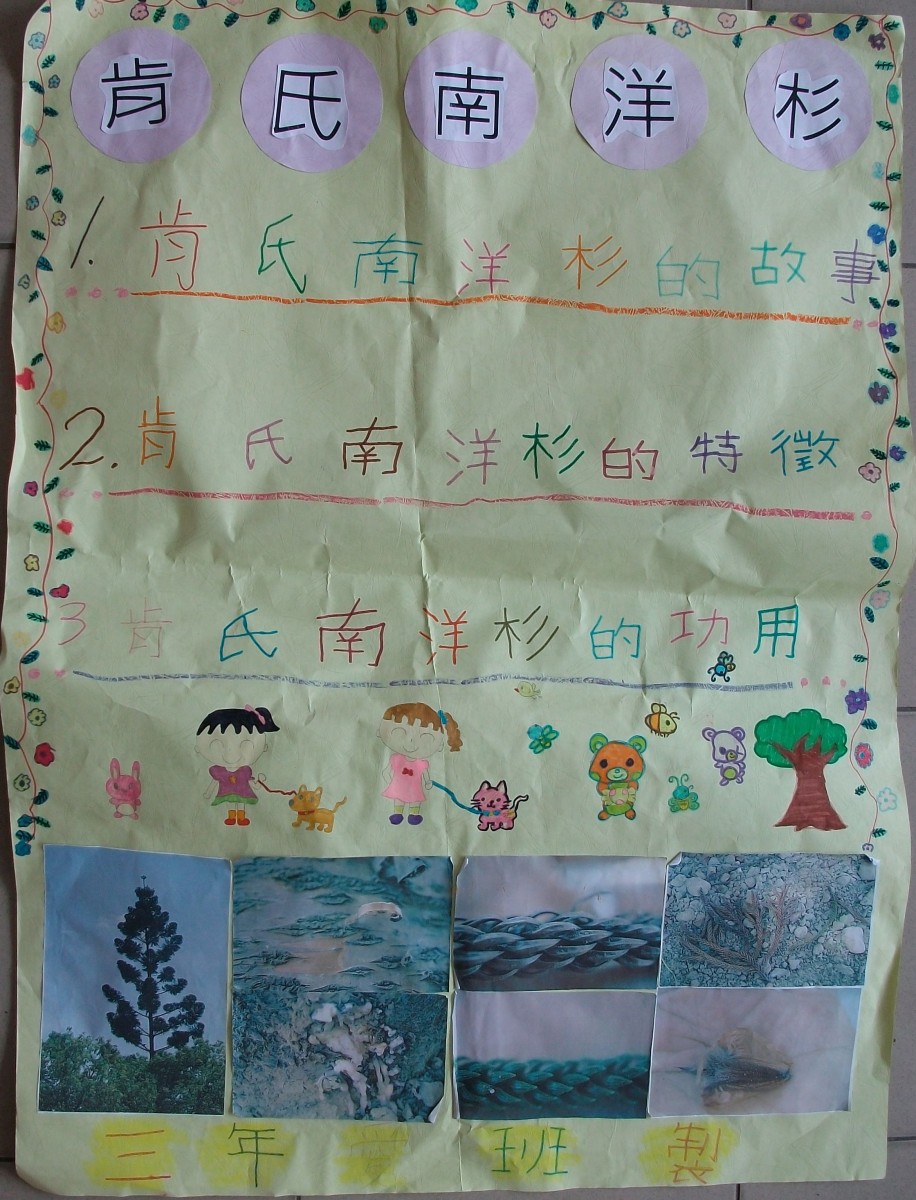 肯氏南洋杉
1.肯氏南洋杉的故事
2.肯氏南洋杉的特徵
3肯氏南洋杉的功用
三年 班製